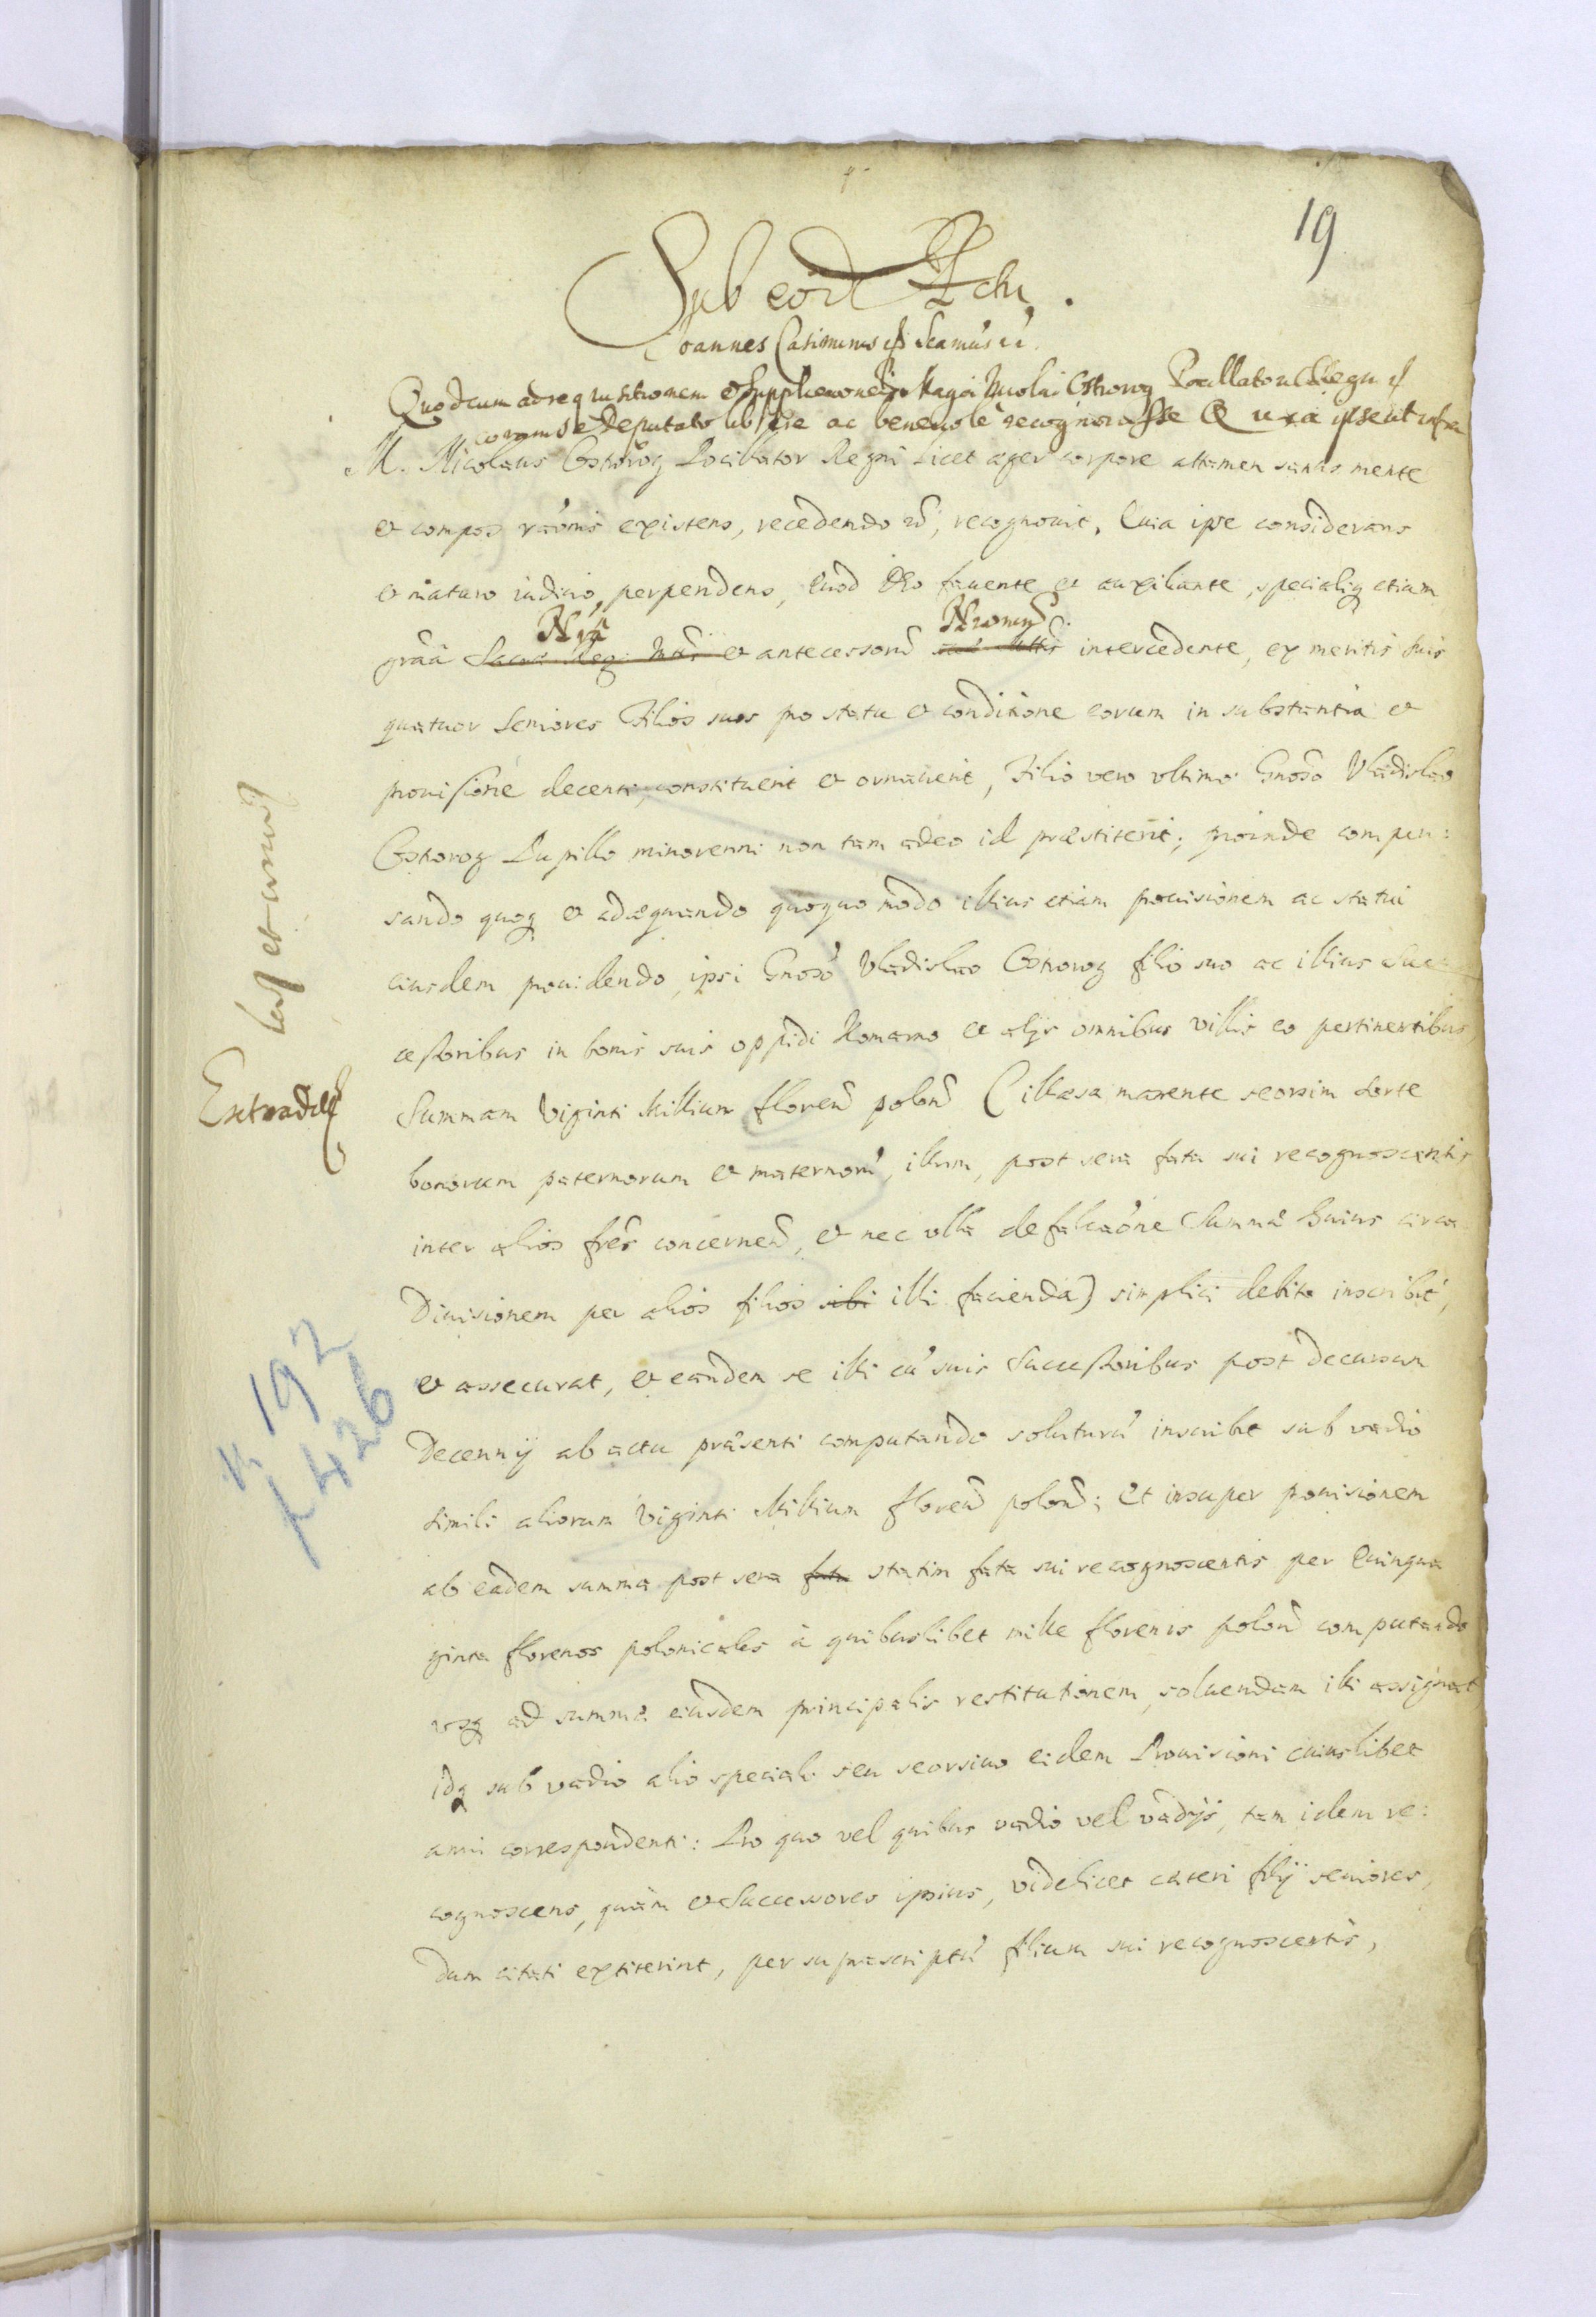 19
Sub eod Actu.
Joannes Casimirus Seamus
Quod cum ad requisitionem Magci Nicolai Ostrorog Pocillatoris Regni
coram se deputato libere ac benevole recognovisse Quia ipse ut infra
M. Nicolaus Ostrorog Pocillator Regni licet æger corpore attamen sanus mente
et compos raõnis existens, recedendo, recognovit, Quia ipse considerans
et maturo iudicio, perpendens, Quod Deo favente et auxiliante, specialiq etiam
Nrã Nrorum
grãa Sacræ Reg Mttis et antecessorũ suæ Mttis intercedente, ex meritis suis
quatuor Seniores Filios suos pro statu et conditione eorum in substantia et
provisione decenti, constituerit et ornaverit, Filio vero ultimo Gnoso Vladislao
Ostrorog Pupillo minorenni non tam adeo id præstiterit; proinde compen:
sando quoq et adæquando quoquo modo illius etiam provisionem ac statui
eiusdem providendo, ipsi Gnoso Vladislao Ostrorog filio suo ac illius Suc
cessoribus in bonis suis oppidi Komarno et alijs omnibus villis eo pertinentibus
Summam Viginti Millium florenũ polonũ (illæsa manente seorsim sorte
bonorum paternorum et maternorũ, illum, post sera fata sui recognoscentis,
inter alios frẽs concernenũ, et nec ulla defalcaõne Summæ huius circa
Divisionem per alios filios sibi illi facienda) simplici debito inscribit,
et assecurat, et eandem se illi cũ suis Successoribus post decursum
Decennij ab actu præsenti computando soluturũ inscribit sub vadio
simili aliorum Viginti Millium florenũ polonũ; Et insuper provisionem
ab eadem summa post sera fata statim fata sui recognoscentis per Quinqua
ginta florenos polonicales à quibuslibet mille florenis polonũ computando
usq ad summæ eiusdem principalis restitutionem, solvendam illi assignat
idq sub vadio alio speciali seu seorsivo eidem Provisioni cuiuslibet
anni correspondenti: Pro quo vel quibus vadio vel vadijs, tam idem re:
cognoscens, quàm et Successores ipsius, videlicet cæteri filij seniores,
dum citati extiterint, per suprascriptũ filium sui recognoscentis,
Extradit
192
f 426